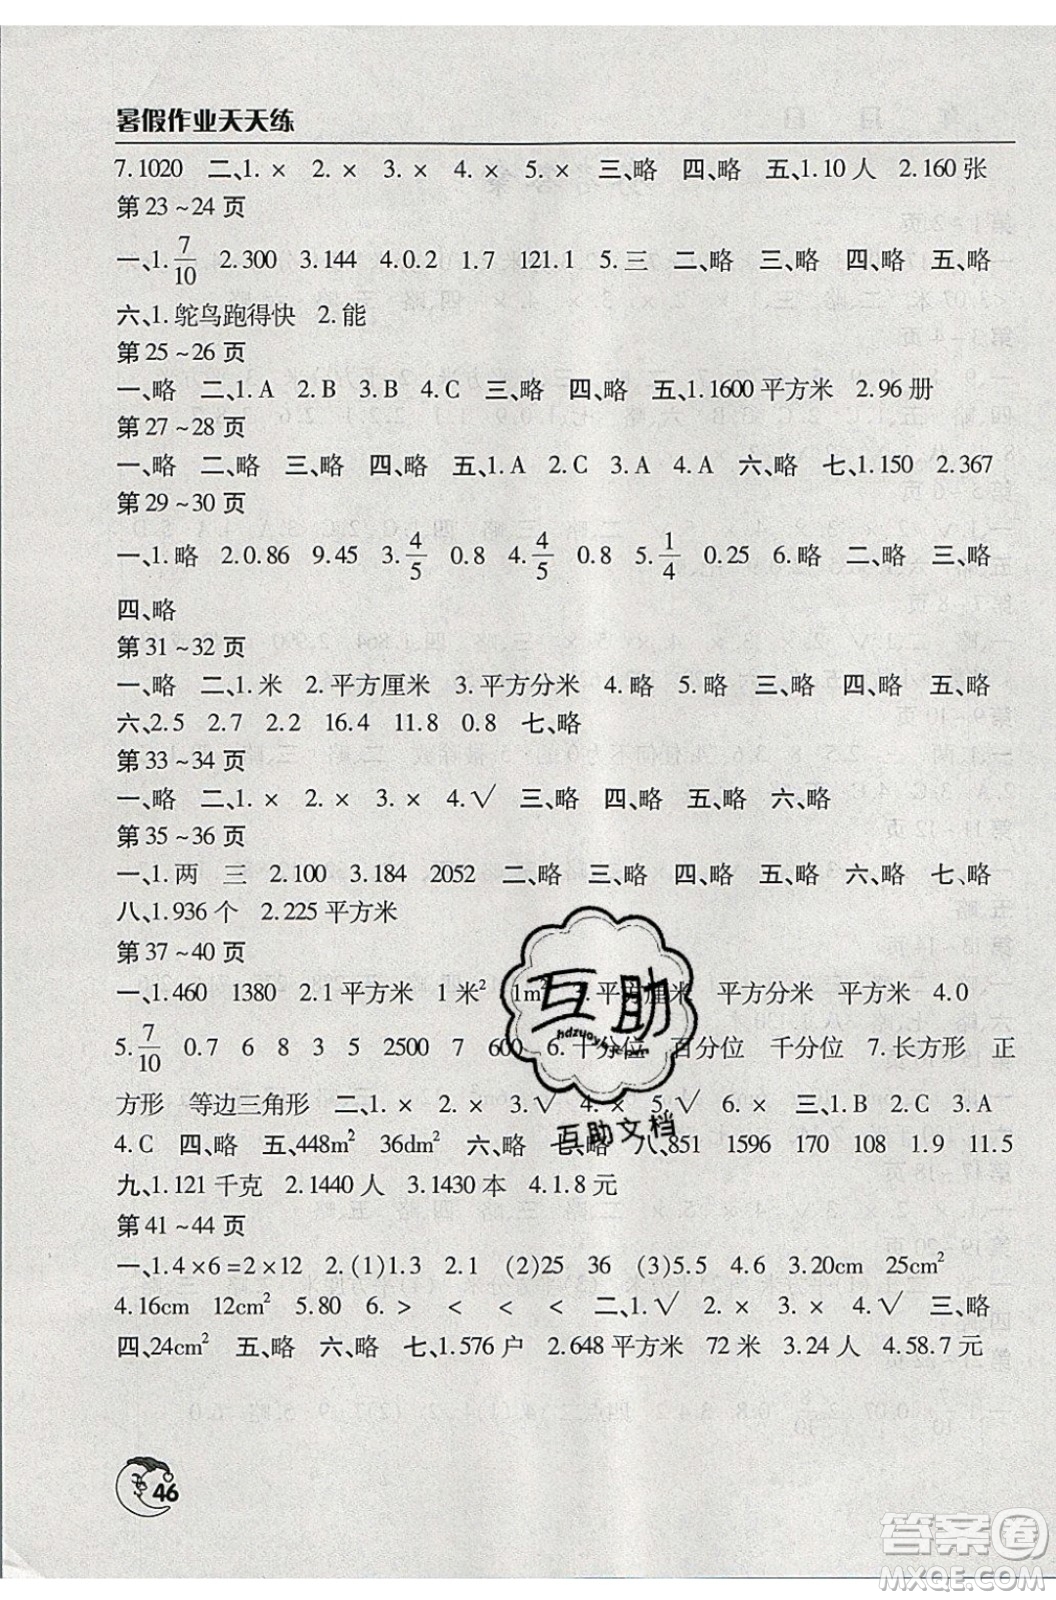 暑假作业天天练
7.1020 二、1. × 2. × 3. × 4. × 5. × 三、略 四、略 五、1.10 人 2.160 张
第 23 ~ 24 页
一、1. 7/10 2.300 3.144 4.0.2 1.7 121.1 5.三 二、略 三、略 四、略 五、略
六、1. 鸵鸟跑得快 2. 能
第 25 ~ 26 页
一、略 二、1. A 2. B 3. B 4. C 三、略 四、略 五、1.1600 平方米 2.96 册
第 27 ~ 28 页
一、略 二、略 三、略 四、略 五、1. A 2. C 3. A 4. A 六、略 七、1.150 2.367
第 29 ~ 30 页
一、1. 略 2.0.86 9.45 3. 4/5 0.8 4. 4/5 0.8 5. 1/4 0.25 6. 略 二、略 三、略
四、略
第 31 ~ 32 页
一、略 二、1. 米 2. 平方厘米 3. 平方分米 4. 略 5. 略 三、略 四、略 五、略
六、2.5 2.7 2.2 16.4 11.8 0.8 七、略
第 33 ~ 34 页
一、略 二、1. × 2. × 3. × 4. √ 三、略 四、略 五、略 六、略
第 35 ~ 36 页
一、1. 两 三 2.100 3.184 2052 二、略 三、略 四、略 五、略 六、略 七、略
八、1.936 个 2.225 平方米
第 37 ~ 40 页
一、1.460 1380 2.1 平方米 1 米² 1m² 3. 平方厘米 平方分米 平方米 4.0
5. 7/10 0.7 6 8 3 5 2500 7 600 6. 十分位 百分位 千分位 7. 长方形 正
方形 等边三角形 二、1. × 2. × 3. √ 4. × 5. √ 6. × 三、1. B 2. C 3. A
4. C 四、略 五、448m² 36dm² 六、略 七、略 八、851 1596 170 108 1.9 11.5
九、1.121 千克 2.1440 人 3.1430 本 4.1.8 元
第 41 ~ 44 页
一、1.4 × 6 = 2 × 12 2.(1)1.3 2.1 (2)25 36 (3)5.5 4.6 3.20cm 25cm²
4.16cm 12cm² 5.80 6. > < < < 二、1. √ 2. × 3. × 4. √ 三、略
四、24cm² 五、略 六、略 七、1.576 户 2.648 平方米 72 米 3.24 人 4.58.7 元
46
互助
互助文档
答案圈
MXQE.COM